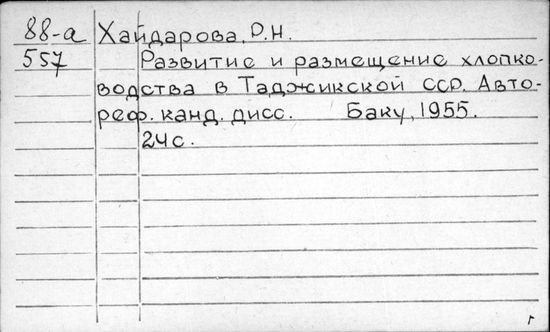 88-а Хайдарова, Р.Н.
557 Развитие и размещение хлопко-
водства в Таджикской ССР. Авто-
реф. канд. дисс. Баку, 1955.
24с.
г